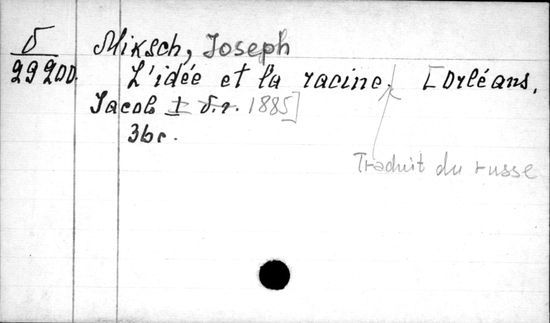 δ Miksch, Joseph
29200. L'idée et la racine. [Orléans,
Jacob I б.г. 1885]
36 с.
Traduit du russe